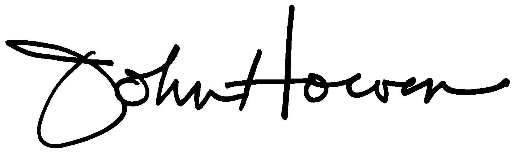 John Hoover